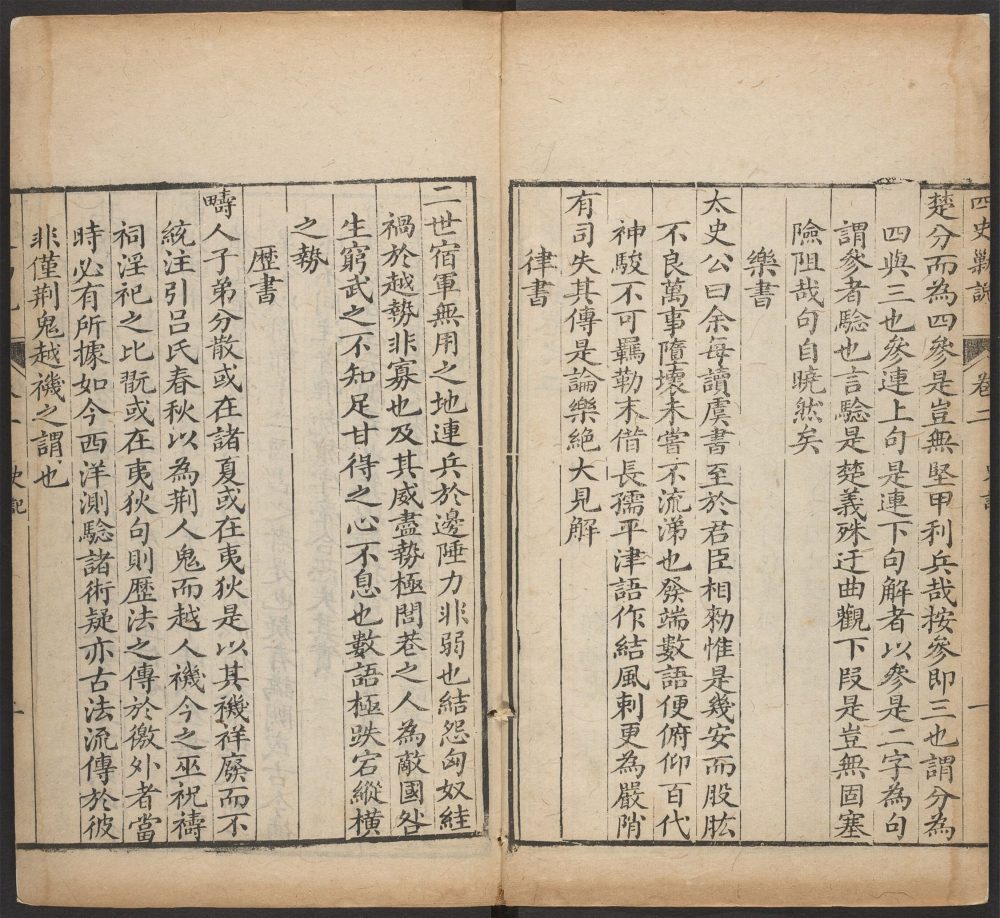 四史勦說 卷二 史記 一
楚分而為四參是豈無堅甲利兵哉按參即三也謂分為
四與三也參連上句是連下句解者以參是二字為句
謂參者驗也言驗是楚義殊迂曲觀下段是豈無固塞
險阻哉句自曉然矣
樂書
太史公曰余每讀虞書至於君臣相勑惟是幾安而股肱
不良萬事墮壞未嘗不流涕也發端數語便俯仰百代
神駿不可羈勒末借長孺平津語作結風刺更為嚴陗
有司失其傳是論樂絕大見解
律書
二世宿軍無用之地連兵於邊陲力非弱也結怨匈奴絓
禍於越勢非寡也及其威盡勢極閭巷之人為敵國咎
生窮武之不知足甘得之心不息也數語極跌宕縱橫
之勢
歷書
疇人子弟分散或在諸夏或在夷狄是以其禨祥廢而不
統注引呂氏春秋以為荆人鬼而越人禨今之巫祝禱
祠淫祀之比翫或在夷狄句則歷法之傳於徼外者當
時必有所據如今西洋測驗諸術疑亦古法流傳於彼
非僅荆鬼越禨之謂也
史記 一